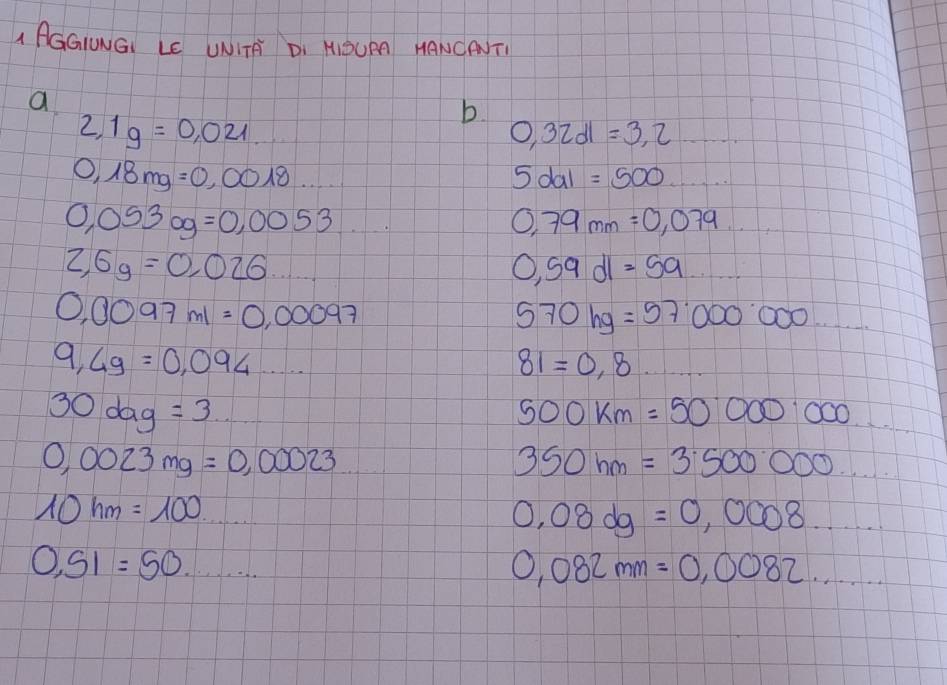 1 AGGIUNGI LE UNITÀ DI MISURA MANCANTI
a.
2,1g = 0,021.....
0,18mg = 0,0018.....
0,053 g = 0,0053.....
2,6g = 0,026.....
0,0097 ml = 0,00097
9,4g = 0,094.....
30 dag = 3.....
0,0023 mg = 0,00023
10 hm = 100.....
0,5l = 50.......
b.
0,32dl = 3,2.....
5 dal = 500.....
0,79 mm = 0,079.....
0,59 dl = 59.....
570 hg = 57'000'000.....
8l = 0,8.....
500 Km = 50'000'000.....
350 hm = 3'500'000.....
0,08 dg = 0,0008.....
0,082 mm = 0,0082......